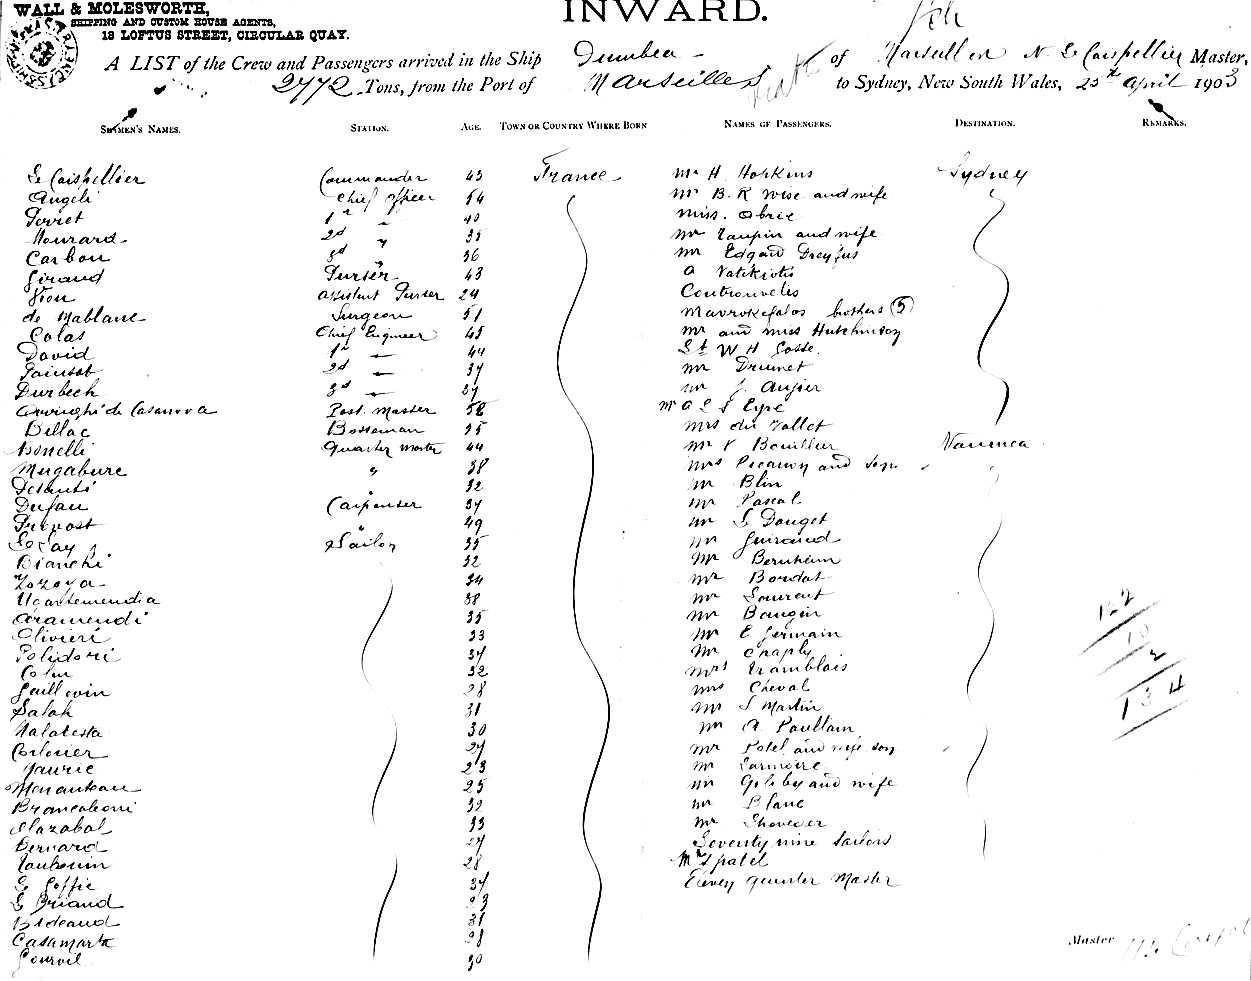 WALL & MOLESWORTH,
SHIPPING AND CUSTOM HOUSE AGENTS,
18 LOFTUS STREET, CIRCULAR QUAY.
INWARD.
A LIST of the Crew and Passengers arrived in the Ship Dumbea of Marseilles N Le Coispellier Master,
2772 Tons, from the Port of Marseilles to Sydney, New South Wales, 25th April 1903
SEAMEN'S NAMES. STATION. AGE. TOWN OR COUNTRY WHERE BORN NAMES OF PASSENGERS. DESTINATION. REMARKS.
Le Coispellier Commander 43 France Mr H Hopkins Sydney
Angeli Chief officer 54 Mr B. R Wise and wife
1st 40 Miss.
Mourard 2d " 35 Mr Taupin and wife
Carbou 3d " 36 Mr Edgard Dreyfus
Giraud Purser 43 A Vatikiotis
Assistent Purser 24
de Mablanc Surgeon 51 Mavrokefalos brothers (3)
Colas Chief Engineer 45 Mr and Miss Hutchinson
David 1st 44 W H Gosse.
2d 37 Mr
Durbech 3d 37 Mr J. Augier
de Casanova Post. Master 58 Mr A L S Eyre
Billac Bosseman 35 Mrs du Tallot
Bonelli Quarter Master 44 Mr V Bouillier Noumea
Mugabure " 38 Mrs and son
32 Mr Blin
Dufau Carpenter 37 Mr Pascal
Prévost " 49 Mr Le Douget
Sailor 35 Mr Guiraud
Bianchi 32 Mr Bernheim
Zozoya 34 Mr Bordat
Ugartemendia 38 Mr Laurent
Aramendi 35 Mr Bougin
Olivieri 33 Mr E Germain
Polidori 37 Mr Chaply
Colin 32 Mrs Tramblais
28 Mrs Cheval
Salah 31 Mr S Martin
Malatesta 30 Mr A. Paullain
27 Mr Potel and wife son
Maurie 23 Mr
Menanteau 25 Mr and wife
Brancaleoni 32 Mr Blanc
Olazabal 33 Mr
Bernard 27 Seventy nine Sailors
28 Mr Spatel
Le Goffic 37 Eleven quarter Master
Le Briand 23
Bideaud 31
Casamarta 28
Gourvil 30
122
10
2
134
Master